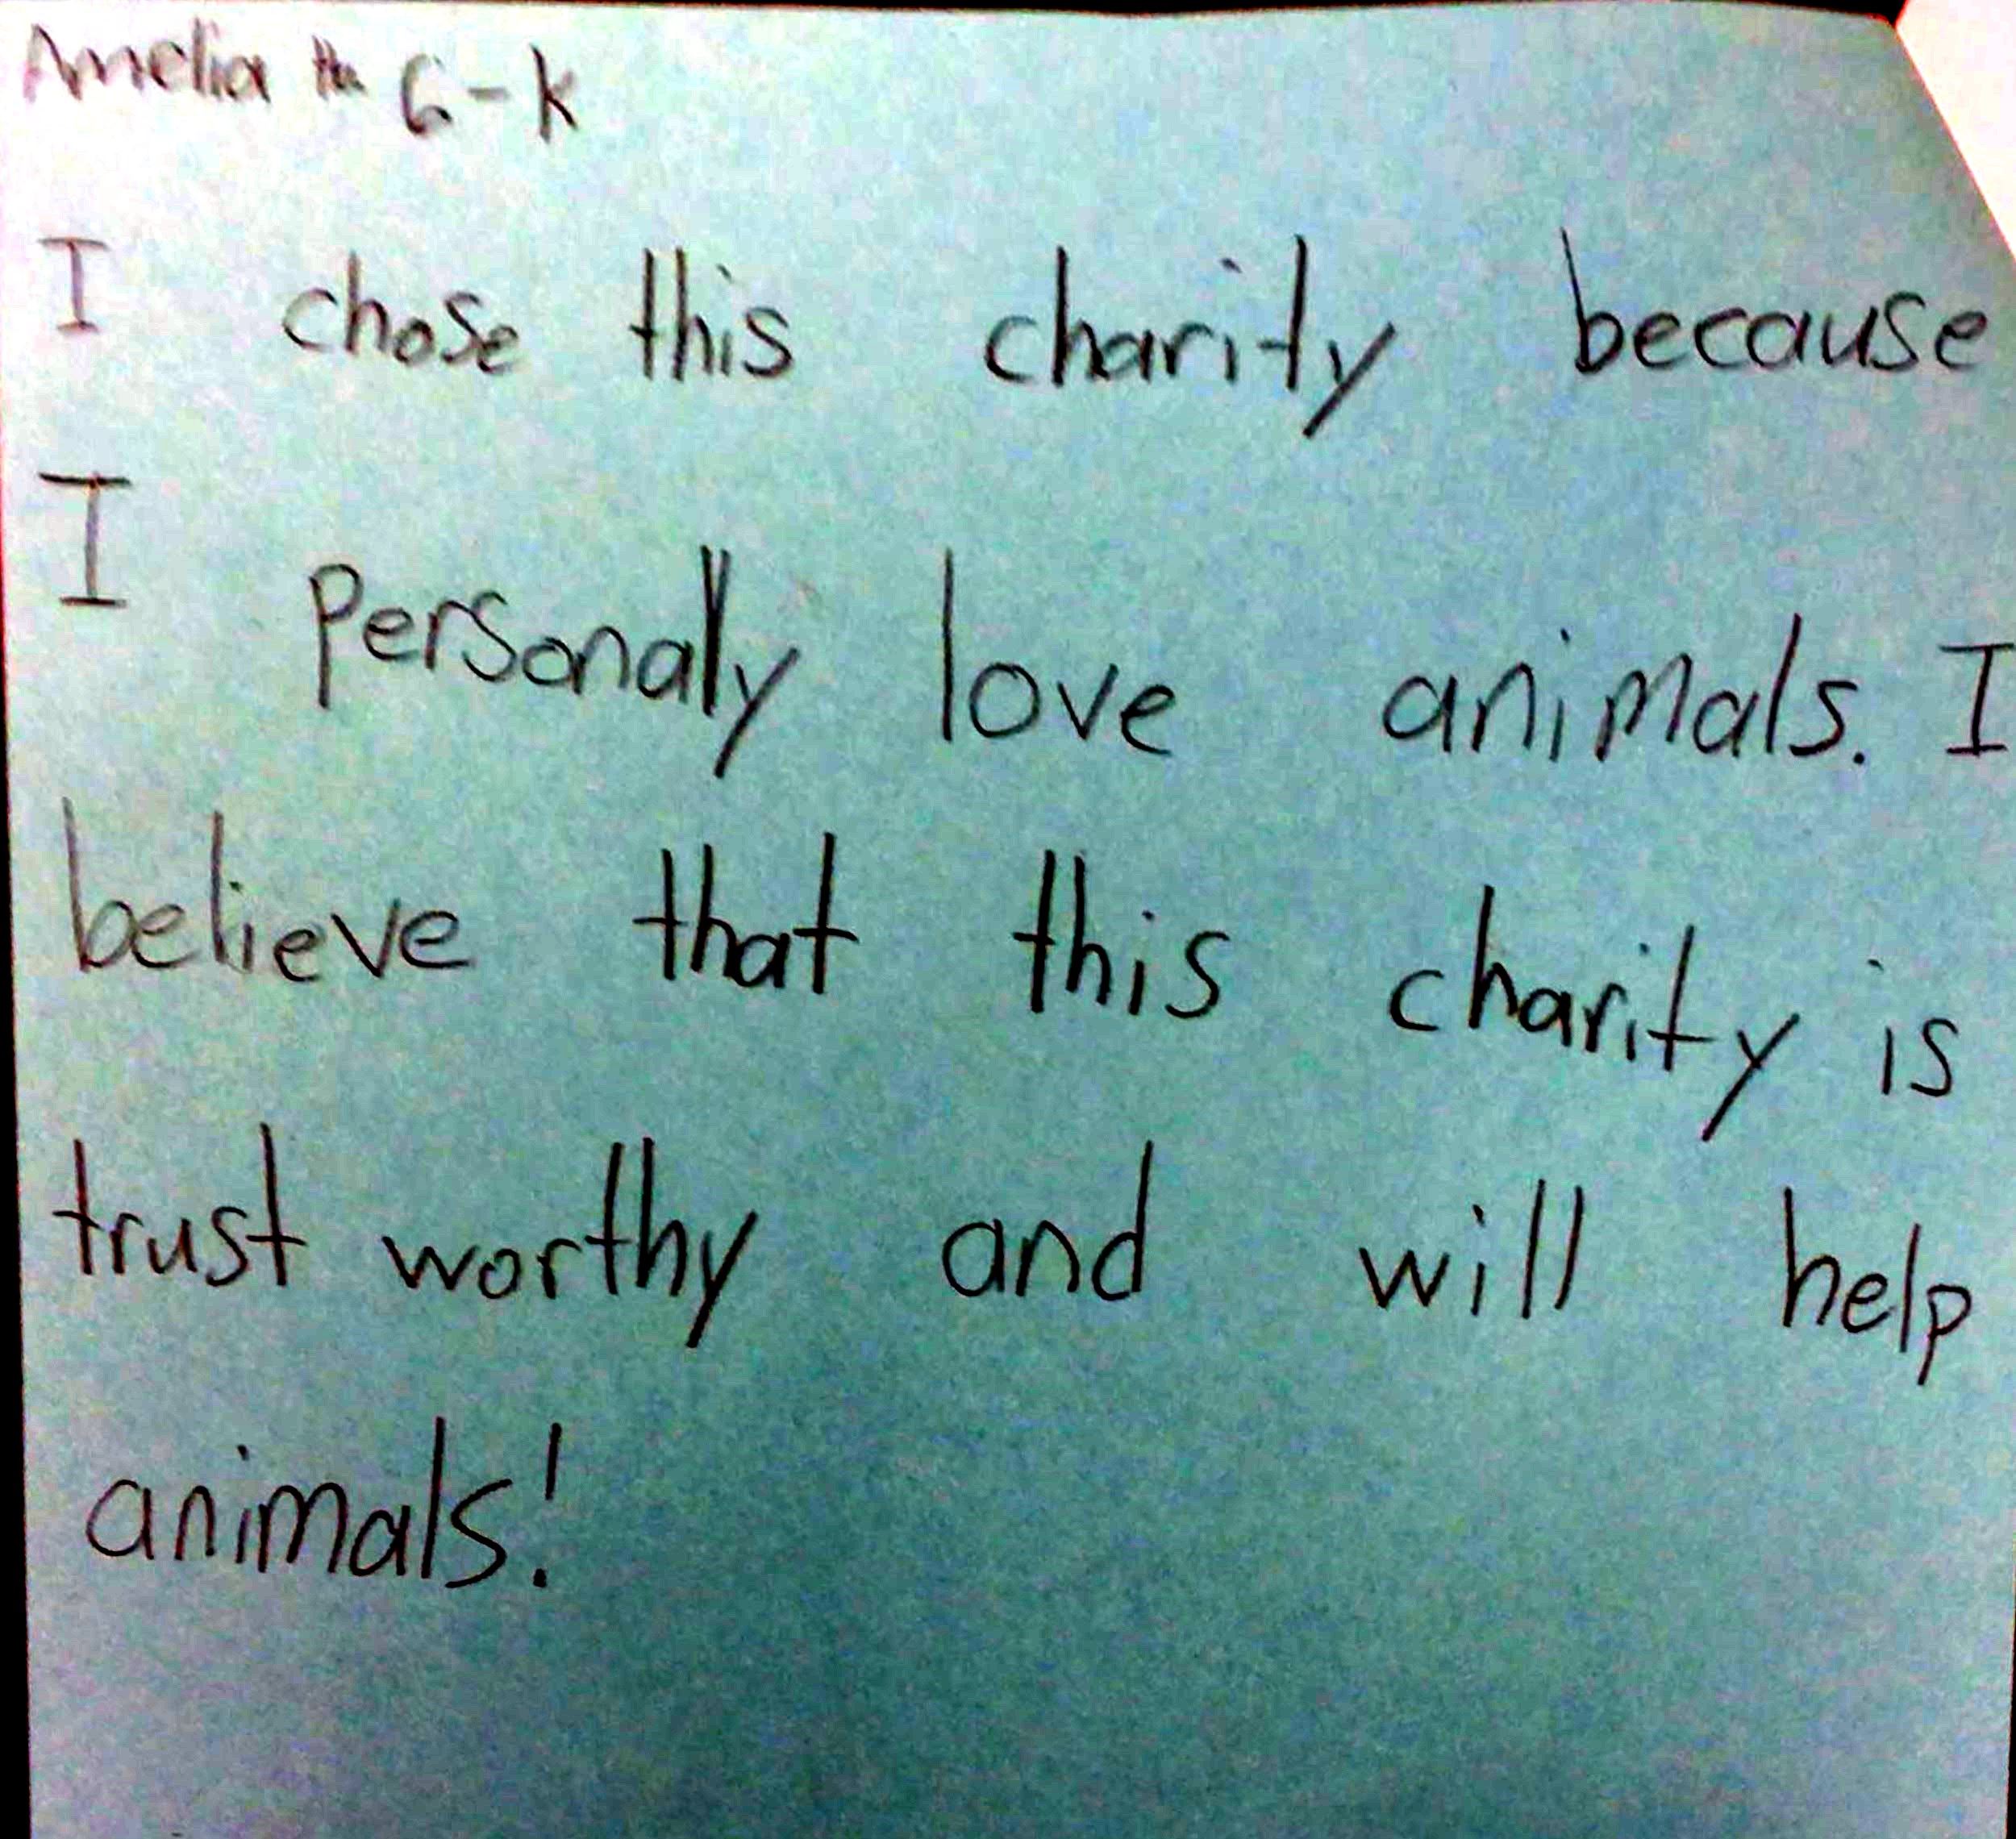 Amelia G-K
I chose this charity because
I Personaly love animals. I
believe that this charity is
trust worthy and will help
animals!